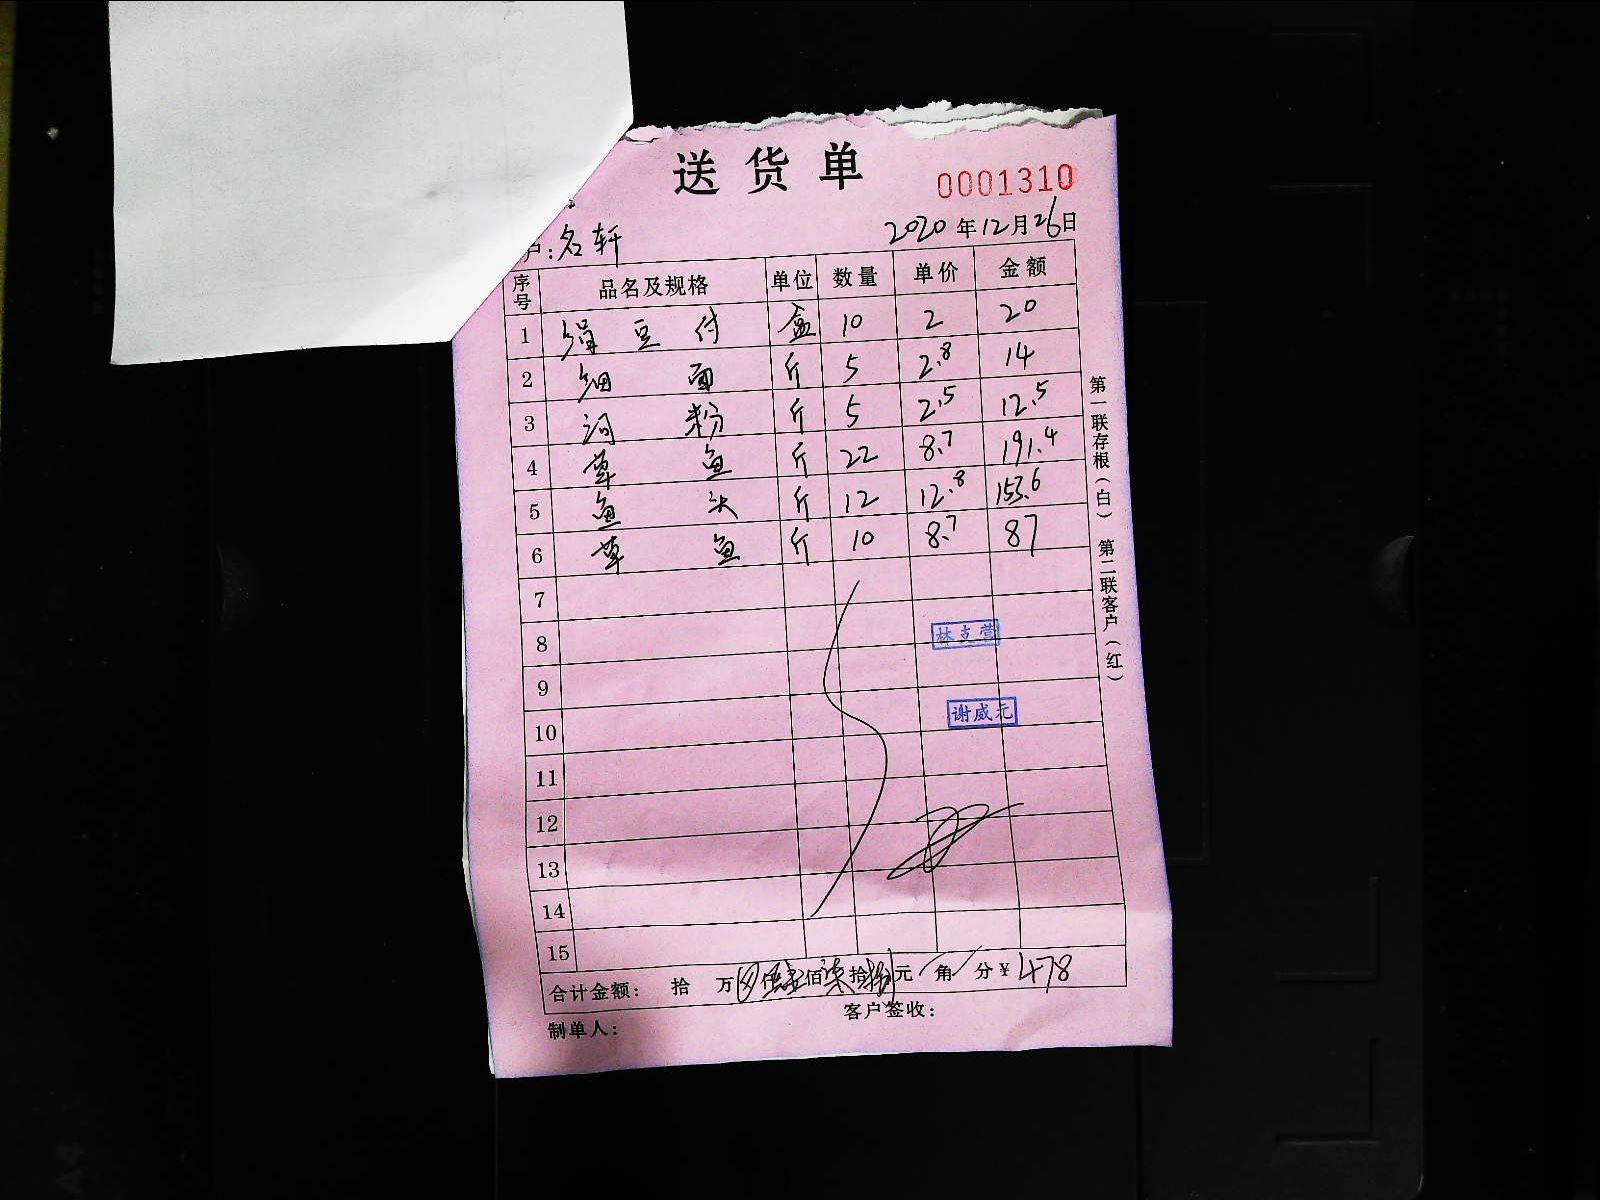 送货单
0001310
户:名轩
2020年12月26日
序号 品名及规格 单位 数量 单价 金额
1 绢豆付 盒 10 2 20
2 细面 斤 5 2.8 14
3 河粉 斤 5 2.5 12.5
4 草鱼 斤 22 8.7 191.4
5 鱼头 斤 12 12.8 153.6
6 草鱼 斤 10 8.7 87
7
8
9
10
11
12
13
14
15
林支营
谢威元
合计金额: 拾 万 仟 佰柒拾捌元 角 分¥478
制单人: 客户签收:
第一联存根(白) 第二联客户(红)